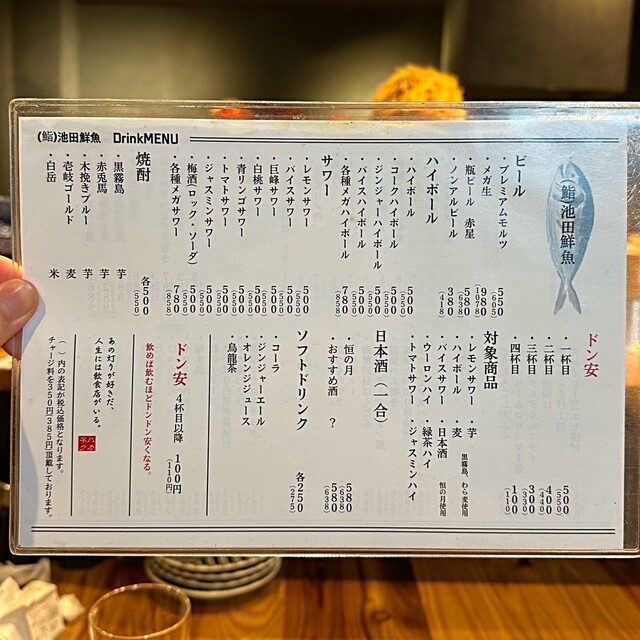 (鮨)池田鮮魚 DrinkMENU
鮨 池田鮮魚
ビール
・プレミアムモルツ 550(605)
・メガ生 980(1078)
・瓶ビール 赤星 580(638)
・ノンアルビール 380(418)
ハイボール
・ハイボール 500(550)
・コークハイボール 500(550)
・ジンジャーハイボール 500(550)
・バイスハイボール 500(550)
・各種メガハイボール 780(858)
サワー
・レモンサワー 500(550)
・バイスサワー 500(550)
・巨峰サワー 500(550)
・白桃サワー 500(550)
・青リンゴサワー 500(550)
・トマトサワー 500(550)
・ジャスミンサワー 500(550)
・梅酒(ロック・ソーダ) 500(550)
・各種メガサワー 780(858)
焼酎 各500(550)
・黒霧島 芋
・赤兎馬 芋
・木挽きブルー 芋
・壱岐ゴールド 麦
・白岳 米
ドン安
・一杯目 500(550)
・二杯目 400(440)
・三杯目 300(330)
・四杯目 100(110)
対象商品
・レモンサワー ・芋 黒霧島、わら麦使用
・ハイボール ・麦
・バイスサワー ・日本酒 恒の月使用
・ウーロンハイ ・緑茶ハイ
・トマトサワー ・ジャスミンハイ
日本酒(一合)
・恒の月 580(638)
・おすすめ酒 ? 580(638)
ソフトドリンク 各250(275)
・コーラ
・ジンジャーエール
・オレンジジュース
・烏龍茶
ドン安 4杯目以降 100円(110円)
飲めば飲むほどドンドン安くなる。
あの灯りが好きだ、
人生には飲食店がいる。
( )内の表記が税込価格となります。
チャージ料を350円(385円)頂戴しております。